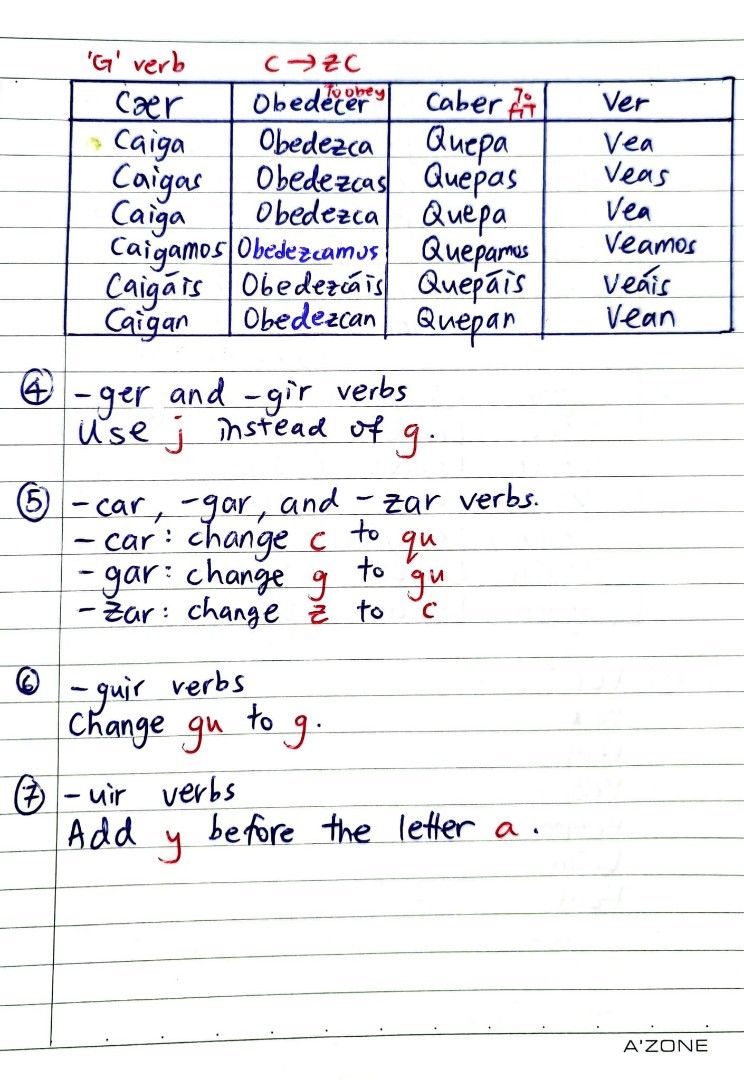 'G' verb C → ZC
Caer Obedecer To obey Caber To FIT Ver
Caiga Obedezca Quepa Vea
Caigas Obedezcas Quepas Veas
Caiga Obedezca Quepa Vea
Caigamos Obedezcamos Quepamos Veamos
Caigáis Obedezcáis Quepáis Veáis
Caigan Obedezcan Quepan Vean
④ -ger and -gir verbs
Use j instead of g.
⑤ -car, -gar, and -zar verbs.
-car: change c to qu
-gar: change g to gu
-zar: change z to c
⑥ -guir verbs
Change gu to g.
⑦ -uir verbs
Add y before the letter a.
A'ZONE